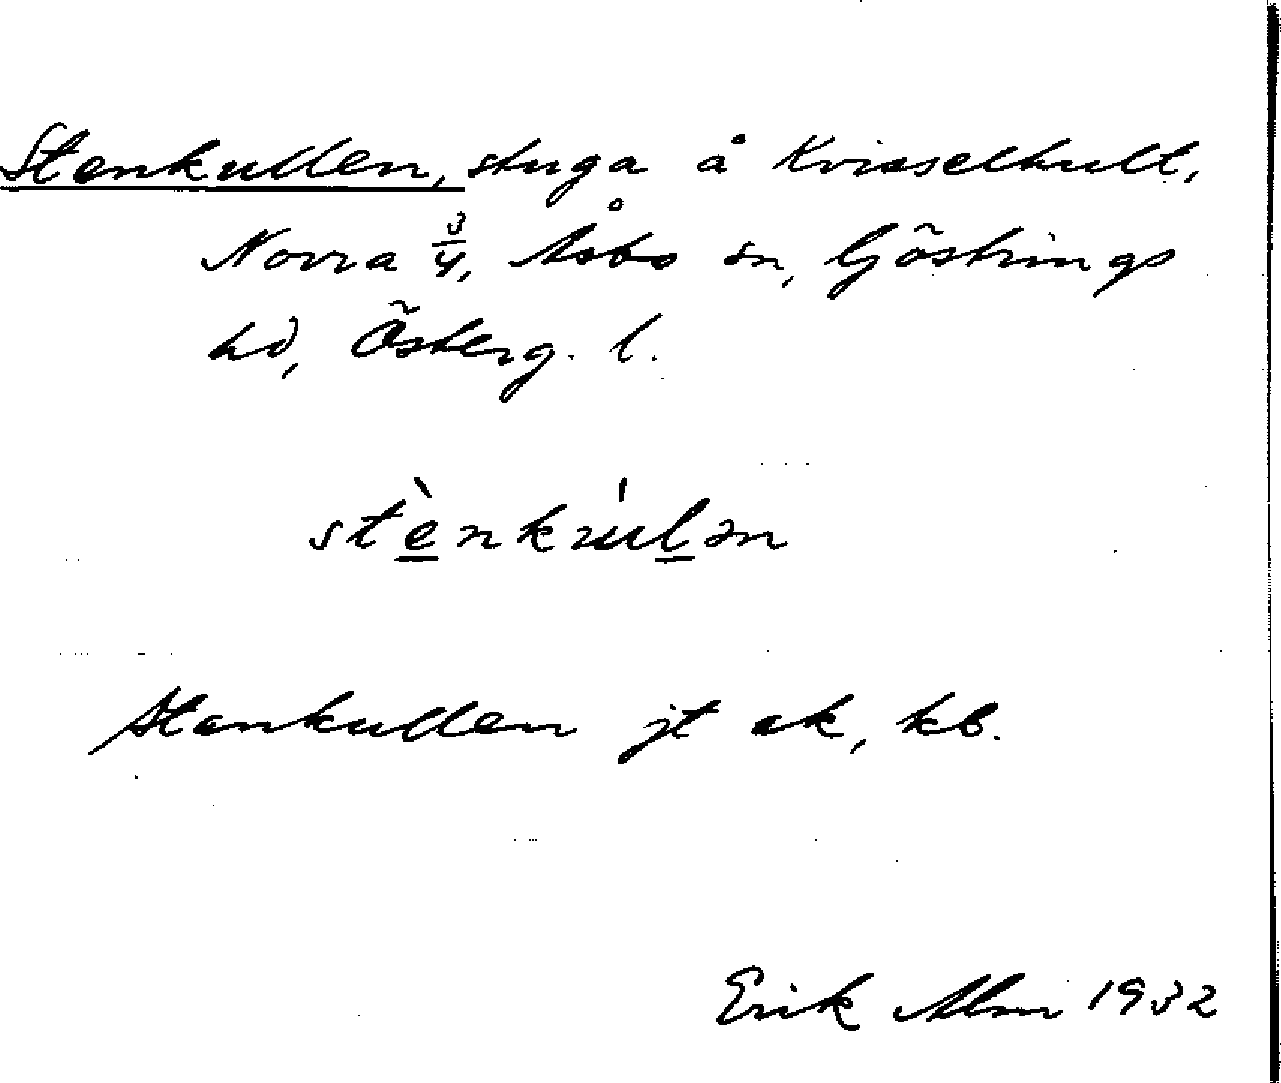 Stenkullen, stuga å Kvisselhult,
Norra 3/4, Åsbo sn, Göstrings
hd, Österg. l.
stènkúlən
Stenkullen jt ek, kb.
Erik Alm 1932